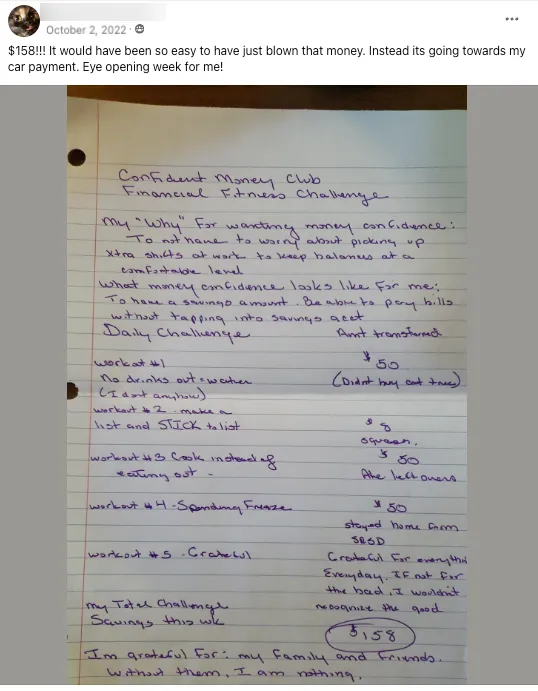 October 2, 2022 ·
$158!!! It would have been so easy to have just blown that money. Instead its going towards my
car payment. Eye opening week for me!
Confident Money Club
Financial Fitness Challenge
My "Why" for wanting money confidence:
To not have to worry about picking up
xtra shifts at work to keep balances at a
comfortable level
What money confidence looks like for me:
To have a savings amount. Be able to pay bills
without tapping into savings acct
Daily Challenge Amt transferred
workout #1 $50
No drinks out = water (Didnt buy cat trees)
(I dont anyhow)
workout #2 - make a
list and STICK to list $8
squash.
workout #3 Cook instead of $50
eating out - Ate leftovers
workout #4 - Spending Freeze $50
stayed home from
workout #5 - Grateful Grateful for everythin
Everyday. If not for
the bad, I wouldn't
my Total Challenge recognize the good
Savings this wk $158
Im grateful for: my family and friends.
Without them, I am nothing.